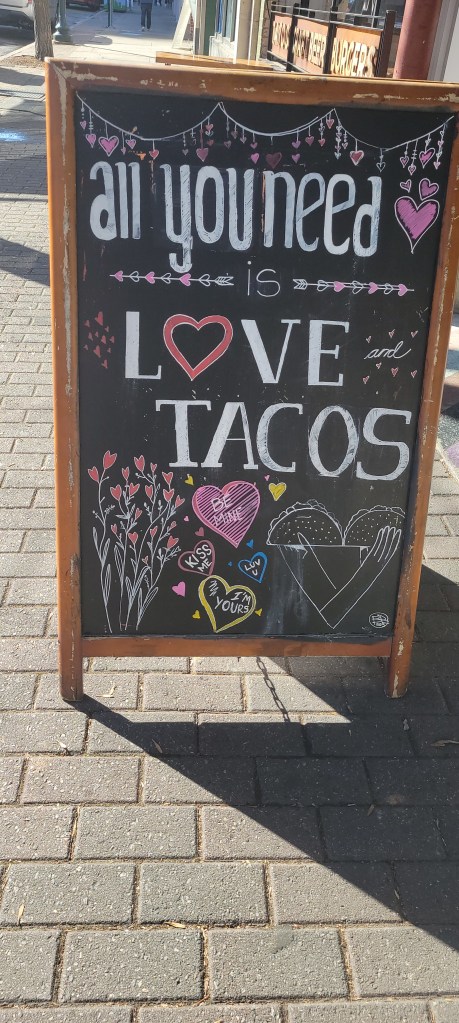 BURGERS
all you need
is
LOVE and
TACOS
BE
MINE
KISS
ME
LUV
U
I'M
YOURS